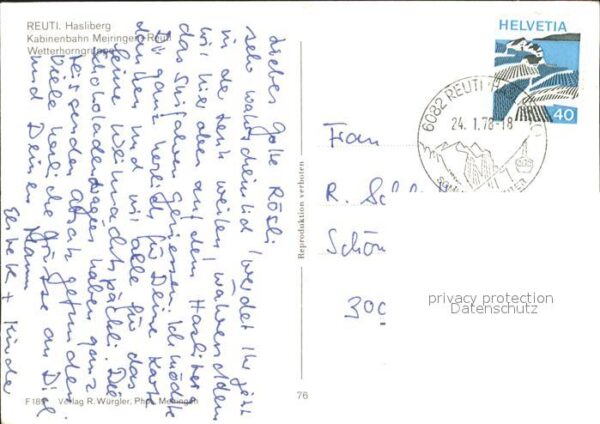 REUTI. Hasliberg
Kabinenbahn Meiringen-Reuti
Wetterhorngruppe
Liebes Gotte Rösli
sehr wahrscheinlich werdet Ihr jetzt
in de weilen, währenddem
wir hier oben auf dem Hasliberg
das Skifahren geniessen. Ich möchte
Dir ganz herzlich für Deine Karte
danken und wir alle für das
feine Weihnachtspäckli. Die
Schokoladen haben ganz
reissenden Absatz gefunden
Viele herzliche Grüsse an Dich
und Deinen Mann
+ Kinder
F 189 Verlag R. Würgler, Phot. Meiringen
Reproduktion verboten
76
HELVETIA
40
6082 REUTI
24.1.78-18
Frau
R.
Schön
300
privacy protection
Datenschutz